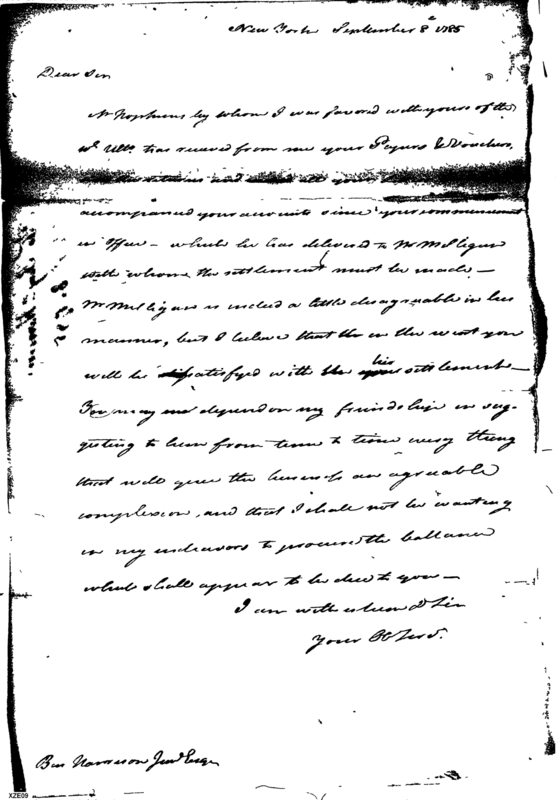 New York September 8th 1785
Dear Sir
Mr Hopkins by whom I was favored with yours of the
Ulto. has received from me your Papers & Vouchers,
and all your
accompanied your accounts since your commencement
in Office – which he has delivered to Mr Milligan
with whom the settlement must be made –
Mr Milligan is indeed a little disagreable in his
manner, but I believe that in the event you
will be satisfyed with his settlement –
You may depend on my friendship in sug-
gesting to him from time to time every thing
that will give the business an agreable
complexion, and that I shall not be wanting
in my endeavors to procure the ballance
which shall appear to be due to you –
I am with esteem D Sir
Your Ob Serv.
Ben Harrison Junr Esqr
XZE09